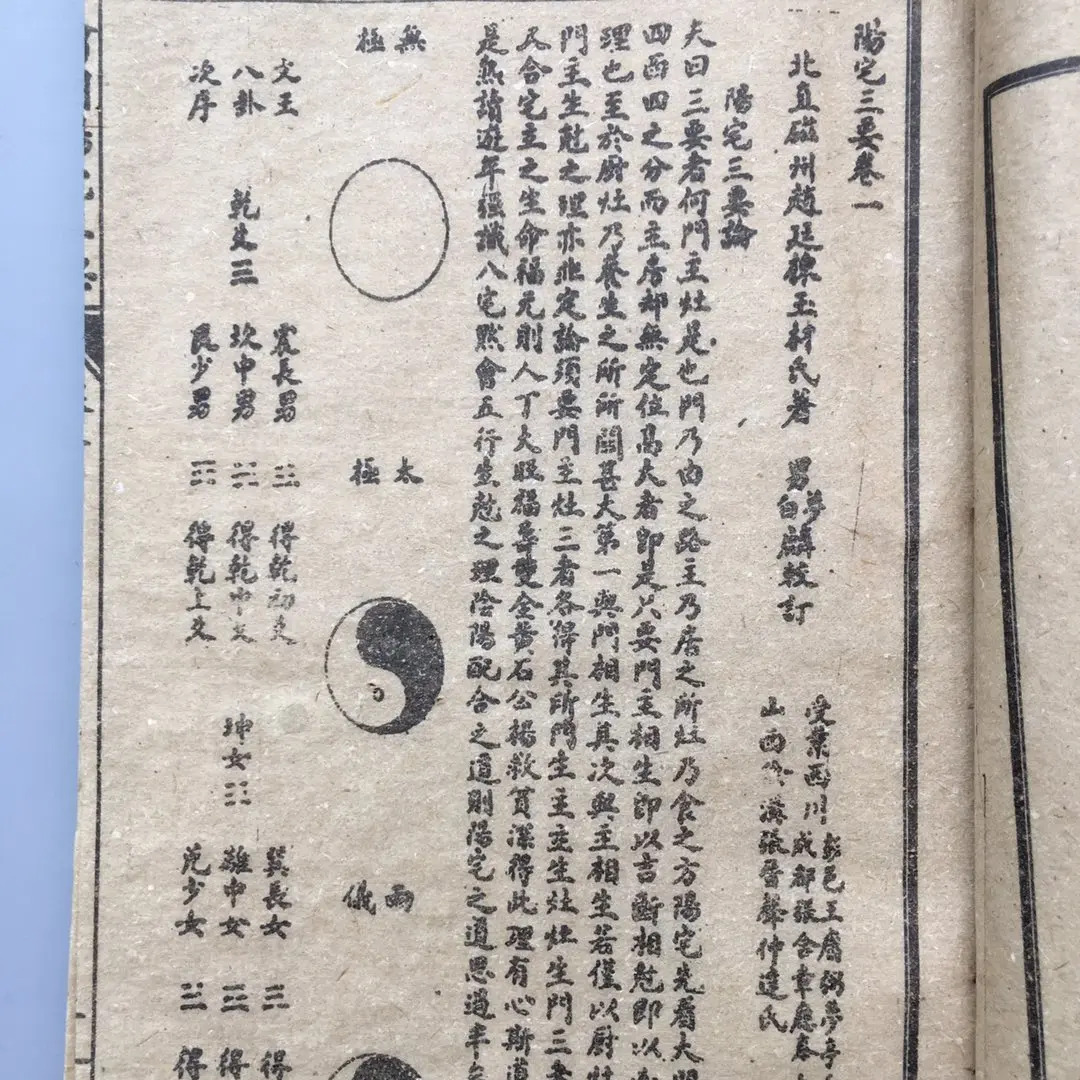 陽宅三要卷一
北直磁州趙廷棟玉材氏著 男夢麟校訂
白
受業西川彭邑王 弼夢亭
成都張含章應泰
山西 溝張晉聲仲達氏
陽宅三要論
夫曰三要者何門主灶是也門乃由之路主乃居之所灶乃食之方陽宅先看大門
四西四之分而主房却無定位高大者即是只要門主相生即以吉斷相尅即以
理也至於厨灶乃養生之所所關甚大第一與門相生其次與主相生若僅以厨灶
門主生尅之理亦非定論須要門主灶三者各得其所門生主主生灶灶生門三者
又合宅主之生命福元則人丁大旺福壽雙全黃石公楊救貧深得此理有心斯道
是熟讀遊年 識八宅熟會五行生尅之理陰陽配合之道則陽宅之道思過半
無極
太極
兩儀
文王
八卦
次序
乾父☰
震長男 ☳ 得乾初爻
坎中男 ☵ 得乾中爻
艮少男 ☶ 得乾上爻
坤女☷
巽長女 ☴ 得
離中女 ☲ 得
兌少女 ☱ 得